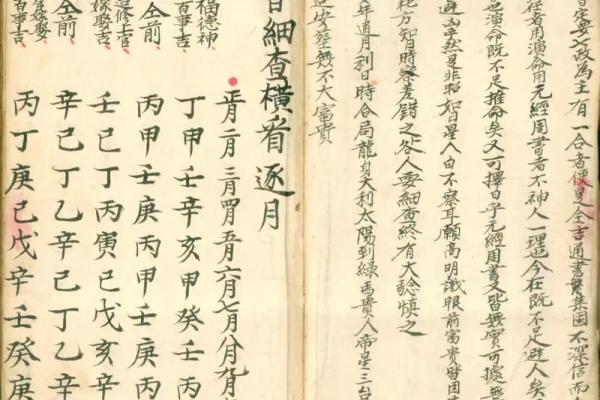 定要入政為主有一合者便是全吉通書聚集固不深信而
在者用演命用元經周書者不神人一理也今在既不足避人矣
也演命既不足推命矣又可擇日乎元經周書又皆無實可據無
避山乎然是非昭如日星人自不察耳願高明識眼前富貴皆因
花方知日時差錯之各人要細查終有大驗慎之
年通月利日時合局龍身大利太陽到綠馬貴人帝星三台
之安塟無不大富貴
細查橫看逐月
正月二月三月四月五月六月七月八月九月
福德神
百事吉
丁甲壬辛亥甲癸壬丙
仝前
丙甲壬庚丙甲壬庚丙
造修上官
嫁娶吉
壬己丁丙寅己戊亥辛
仝前
辛己丁乙辛己丁乙辛
官嫁娶
百事吉
丙丁庚己戊辛壬癸庚